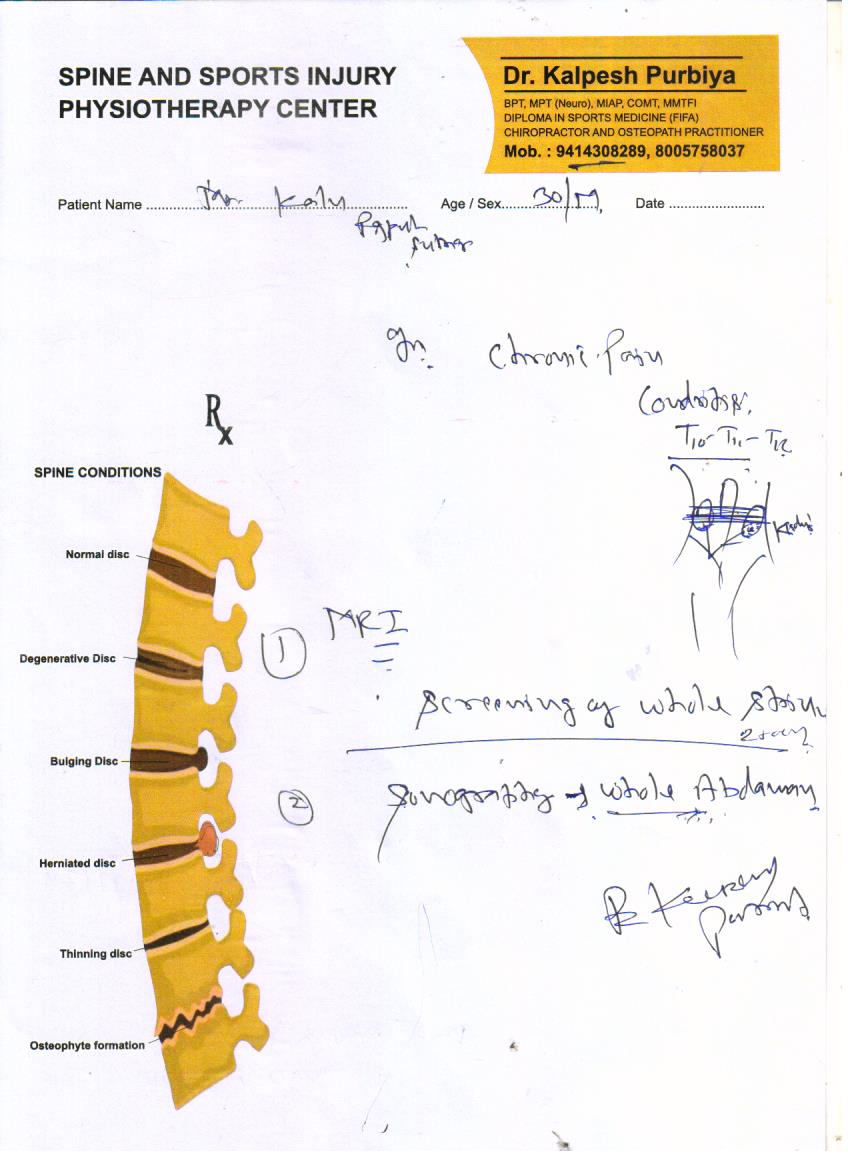 SPINE AND SPORTS INJURY
PHYSIOTHERAPY CENTER
Dr. Kalpesh Purbiya
BPT, MPT (Neuro), MIAP, COMT, MMTFI
DIPLOMA IN SPORTS MEDICINE (FIFA)
CHIROPRACTOR AND OSTEOPATH PRACTITIONER
Mob. : 9414308289, 8005758037
Patient Name ........ Kalu ........ Age / Sex........30/M........ Date ........................
Chronic Pain
T10-T11-T12
Rx
SPINE CONDITIONS
Normal disc
Degenerative Disc
Bulging Disc
Herniated disc
Thinning disc
Osteophyte formation
① MRI
Screening of whole
② Sonography of whole Abdomen